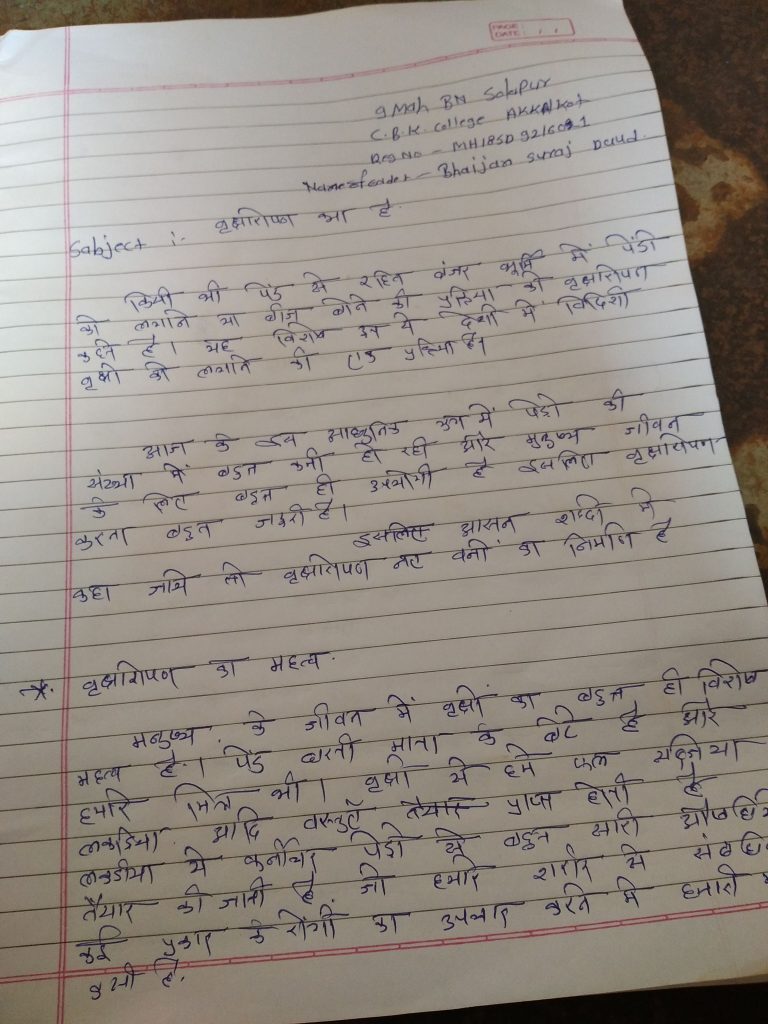 PAGE:
DATE: / /
9 Mah BN Solapur
C.B.K. College AKKAlkot
Reg No - MH18SD9216021
Name of Cader - Bhaijan Suraj Daud.
Sabject :- वृक्षारोपण क्या है.
किसी भी पेंड से रहित बंजर भूमि में पेंडो
को लगाने या बीज बोने की प्रक्रिया को वृक्षारोपण
कहते है। यह विशेष रूप से देशी में विदेशी
वृक्षो को लगाने की एक प्रक्रिया है।
आज के इस आधुनिक युग में पेडो की
संख्या में बहुत कमी हो रही और मुनुष्य जीवन
के लिए बहुत ही उपयोगी है इसलिए वृक्षारोपण
करना बहुत जरूरी है।
इसलिए आसन शब्दो मे
कहा जाये तो वृक्षारोपण नए वनों का निर्माण है
*. वृक्षारोपण का महत्व.
मनुष्य के जीवन में वृक्षों का बहुत ही विशेष
महत्व है। पेंड धरती माता के बेटे है और
हमारे मित्र भी। वृक्षो से हमे फल सब्जिया
लकडिया आदि वस्तुएँ तैयार प्राप्त होती है
लकडीया से फर्नीचर पेडो से बहुत सारी
तैयार की जाती है जो हमारे शरीर से
कई प्रकार के रोगों का उपचार करने मे हमारी
है.